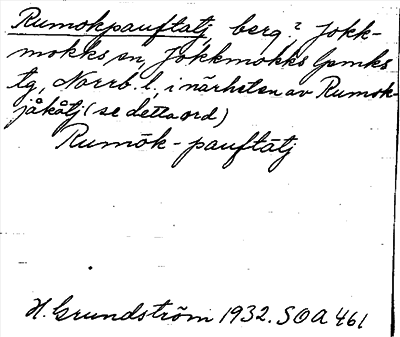 Rumokpauftatj berg? Jokk-
mokks sn, Jokkmokks lpmks
tg, Norrb. l., i närheten av Rumok-
jåkåtj (se detta ord)
Rumōk - pauftātj
H. Grundström 1932. SOA 461